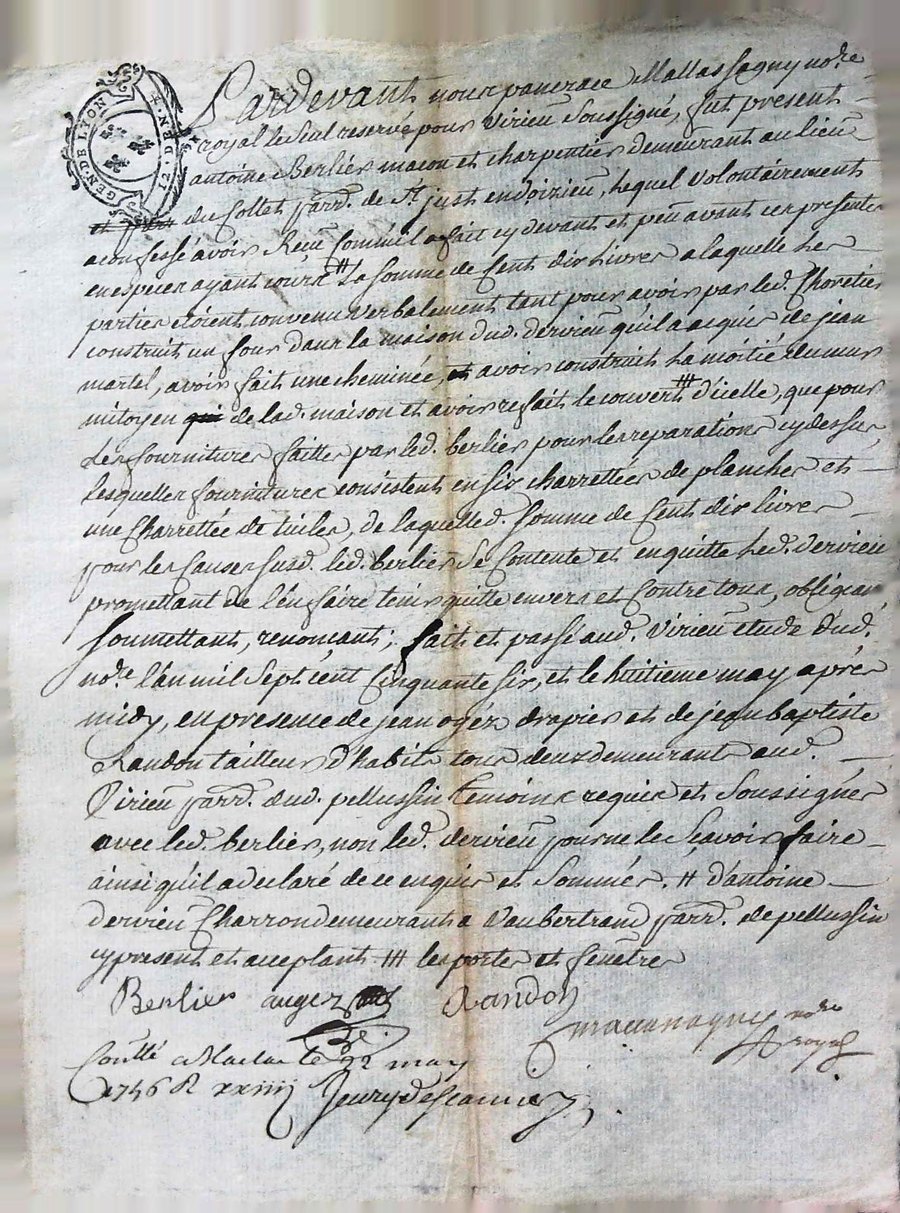 GEN. DE LYON
Pardevant nous pancrace Mallassagny no.re
royal le seul reservé pour Virieu soussigné, fut present
antoine Berlier macon et charpentier demeurant au lieu
du Collet parr. de St just en doizieu, lequel volontairement
a confessé avoir Receu comme il a fait cy devant et peu avant ces presentes
en especes ayant cours # la somme de Cent dix livres a laquelle les
parties etoient convenu verbalement tant pour avoir par led.
construit un four dans la maison dud. dervieu qu'il a acquis de jean
martel, avoir fait une cheminée, et avoir construit la moitié du mur
mitoyen qui de lad. maison et avoir refait le couvert ## d'icelle, que pour
les fournitures faittes par led. berlier pour les reparations cy dessus,
lesquelles fournitures consistent en six charrettées de planches et
une Charrettée de tuiles, de laquelle d. somme de Cent dix livres
pour les Causes susd. led. berlier se Contente et en quitte led. dervieu
promettant de l'en faire tenir quitte envers et Contre tous, obligeant
soumettant, renoncant; fait et passé aud. Virieu etude dud.
no.re l'an mil sept cent Cinquante six, et le huitieme may apres
midy, en presence de jean ogéz drapier et de jean baptiste
Randon tailleur d'habits tous deux demeurants aud.
Virieu parr. dud. pellussin temoins requis et soussignés
avec led. berlier, non led. dervieu pour ne le sçavoir faire
ainsi qu'il a declaré de ce enquis et sommés. # d'antoine
dervieu Charron demeurant a Vaubertrand parr. de pellussin
cy present et acceptant ## les portes et fenêtres
Berlier augez Randon
no.re
royal
Conllé a Maclas le 22 may
1756 R xxiiij